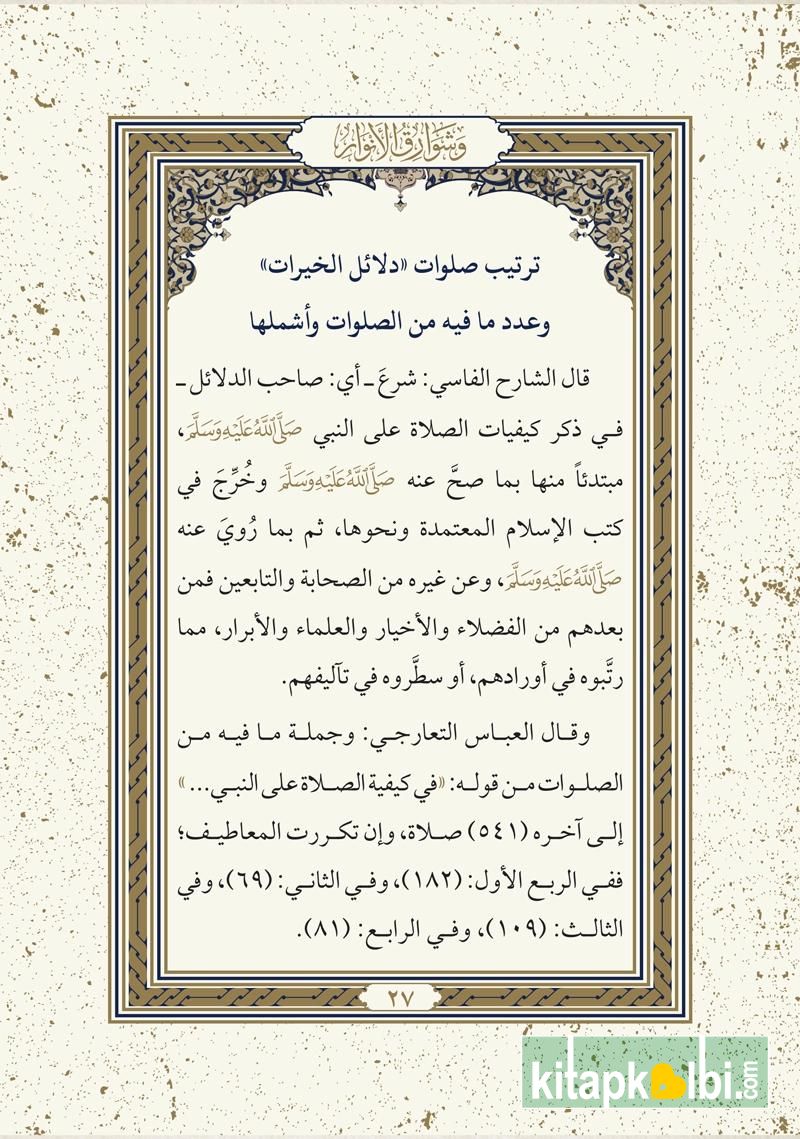 وشوارق الأنوار
ترتيب صلوات «دلائل الخيرات»
وعدد ما فيه من الصلوات وأشملها
قال الشارح الفاسي: شرعَ ـ أي: صاحب الدلائل ـ
فـي ذكر كيفيات الصلاة على النبي صَلَّى ٱللَّهُ عَلَيْهِ وَسَلَّمَ،
مبتدئاً منها بما صحَّ عنه صَلَّى ٱللَّهُ عَلَيْهِ وَسَلَّمَ وخُرِّجَ في
كتب الإسلام المعتمدة ونحوها، ثم بما رُويَ عنه
صَلَّى ٱللَّهُ عَلَيْهِ وَسَلَّمَ، وعن غيره من الصحابة والتابعين فمن
بعدهم من الفضلاء والأخيار والعلماء والأبرار، مما
رتَّبوه في أورادهم، أو سطَّروه في تآليفهم.
وقـال العبـاس التعارجـي: وجملـة مـا فيـه مـن
الصلـوات مـن قولـه: «في كيفية الصـلاة على النبـي... »
إلـى آخـره (٥٤١) صـلاة، وإن تكـررت المعاطيـف؛
ففـي الربـع الأول: (١٨٢)، وفـي الثانـي: (٦٩)، وفي
الثالـث: (١٠٩)، وفـي الرابـع: (٨١).
٢٧
kitapkalbi.com